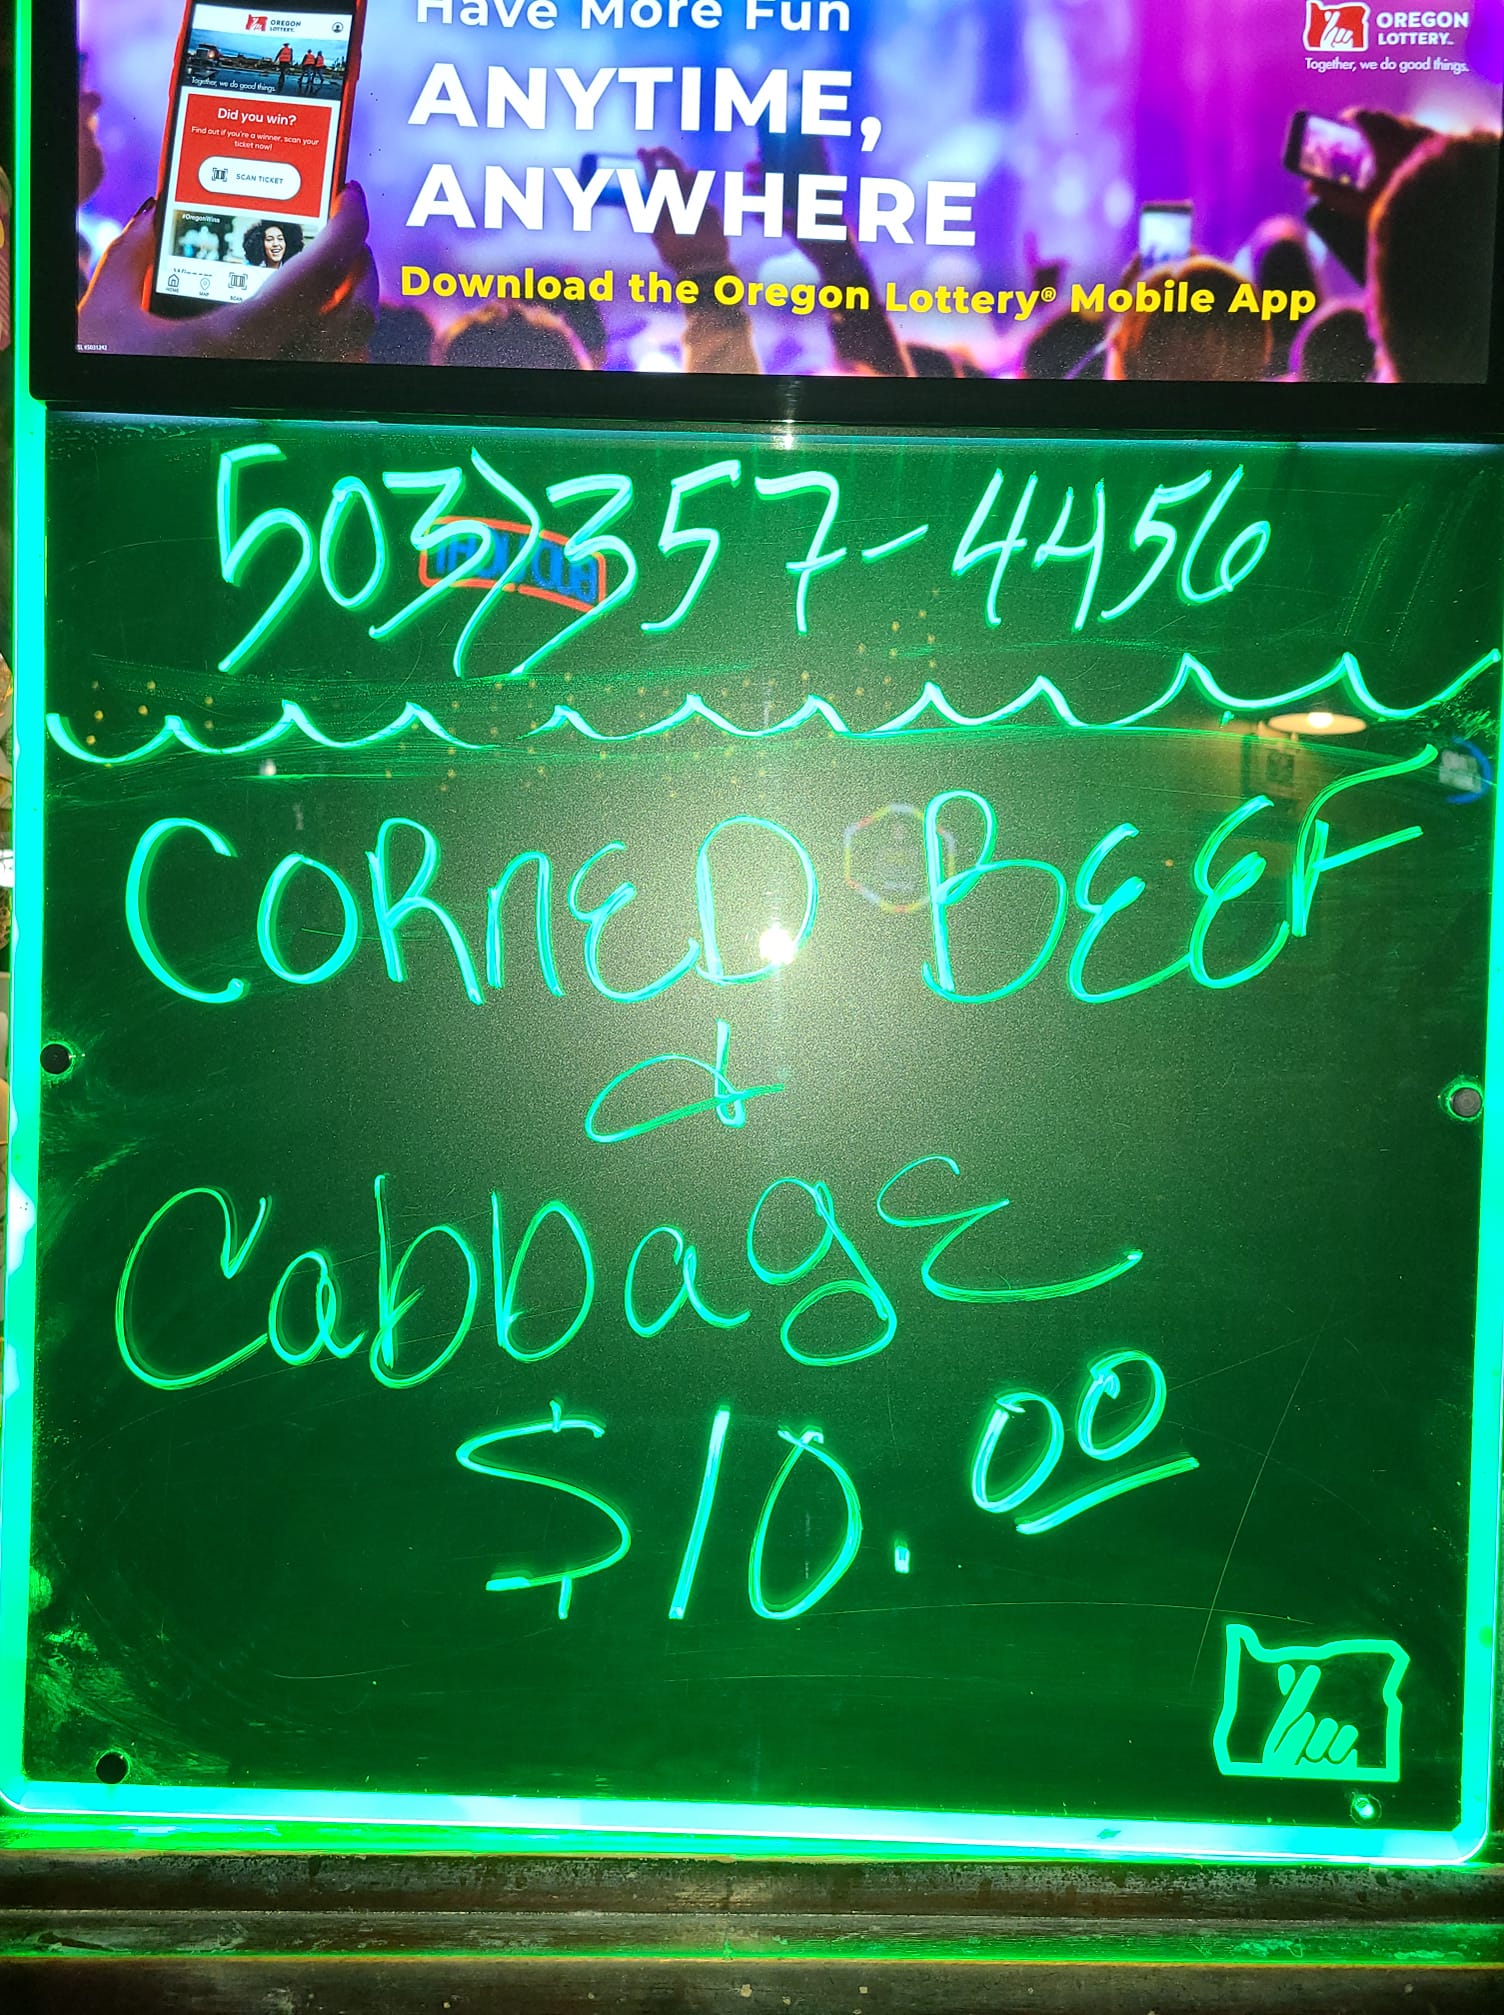 Have More Fun
ANYTIME,
ANYWHERE
Download the Oregon Lottery® Mobile App
OREGON
LOTTERY
Together, we do good things.
OREGON
LOTTERY
Together, we do good things.
Did you win?
Find out if you're a winner, scan your
ticket now!
SCAN TICKET
#OregonWins
HOME
MAP
SCAN
503)357-4456
CORnED BEEF
&
CabbagE
$10.00